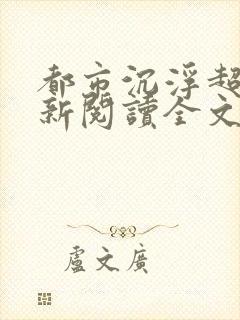 都市沉浮超
新閱讀全文
盧文廣